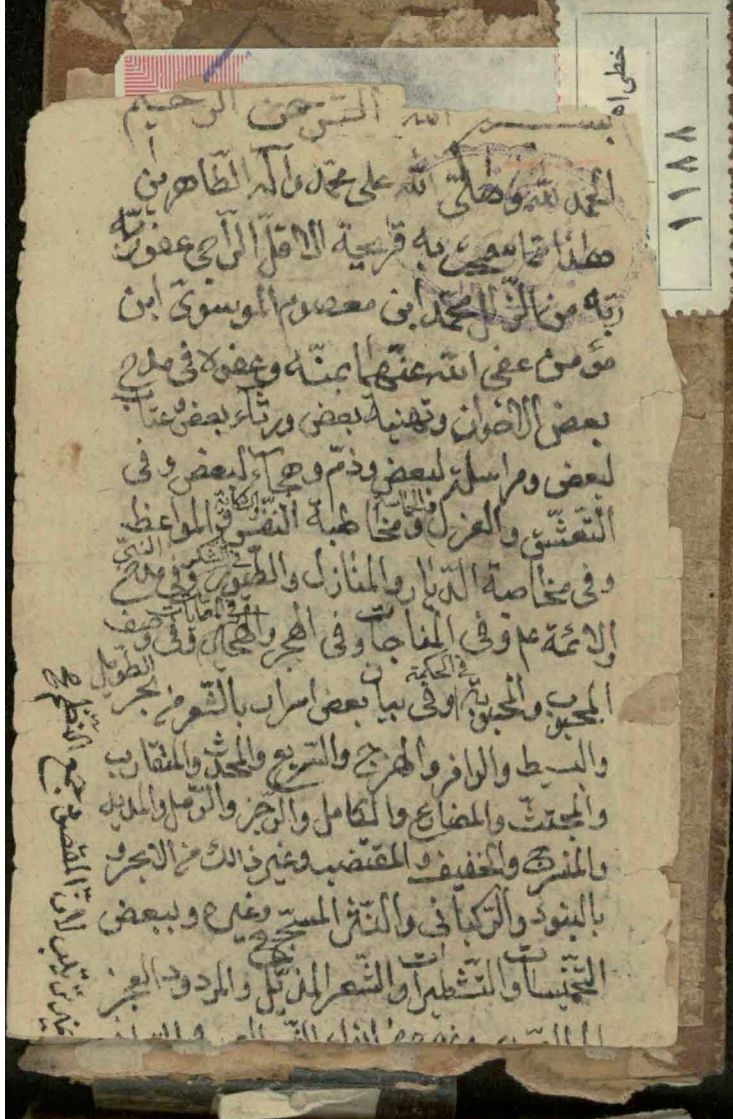 خطی اه
١١٨٨
بسم الله الرحمن الرحيم
الحمد لله وصلّى الله على محمّد وآله الطّاهرين
هذا ممّا به قريحة الاقلّ الرّاجي عفو ربّه
من الزّلل محمّد ابن معصوم الموسوىّ ابن
مؤمن عفى الله عنهما بمنّه وعفوه فى مدح
بعض الاخوان وتهنية بعض ورثاء بعض وعتاب
لبعض ومراسلة لبعض وذمّ وهجاء لبعض وفى
التعشّق والغزل ومخاطبة النّفس والمواعظ
وفى مخاصمة الدّيار والمنازل والطّيور وفى مدح النبىّ
والائمة ع م وفى المناجات وفى الهجر وفى وصف
المحبوب والمحبوبة فى الحكمة وفى بيان بعض اسرار بالشّعر من بحر الطّويل
والبسيط والوافر والهزج والسّريع والمحدث والمتقارب
والمجتثّ والمضارع والكامل والرّجز والرّمل والمديد
والمنسرح والخفيف والمقتضب وغير ذالك من البحر و
بالبنود والرّكبانى والنّثر المسجّع وغيره وببعض
التخميسات والتّشطيرات والشّعر المذيّل والمردود العجز
لانّ المقصود جمع النّظم